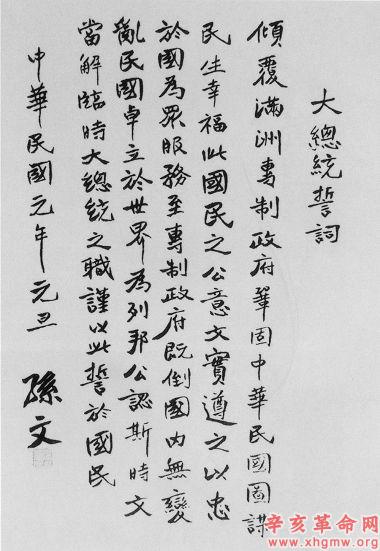 大總統誓詞
傾覆滿洲專制政府鞏固中華民國圖謀
民生幸福此國民之公意文實遵之以忠
於國為眾服務至專制政府既倒國內無變
亂民國卓立於世界為列邦公認斯時文
當解臨時大總統之職謹以此誓於國民
中華民國元年元旦
孫文
辛亥革命网
www.xhgmw.org